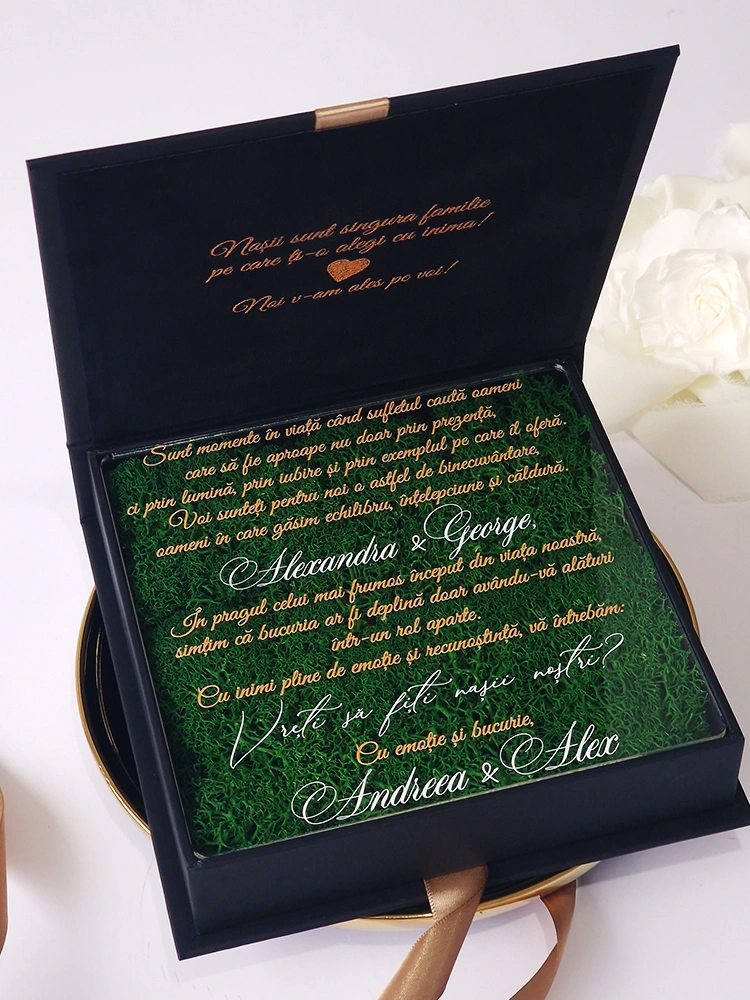 Nașii sunt singura familie
pe care ți-o alegi cu inima!
Noi v-am ales pe voi!
Sunt momente în viață când sufletul caută oameni
care să fie aproape nu doar prin prezență,
ci prin lumină, prin iubire și prin exemplul pe care îl oferă.
Voi sunteți pentru noi o astfel de binecuvântare,
oameni în care găsim echilibru, înțelepciune și căldură.
Alexandra & George,
În pragul celui mai frumos început din viața noastră,
simțim că bucuria ar fi deplină doar avându-vă alături
într-un rol aparte.
Cu inimi pline de emoție și recunoștință, vă întrebăm:
Vreți să fiți nașii noștri?
Cu emoție și bucurie,
Andreea & Alex